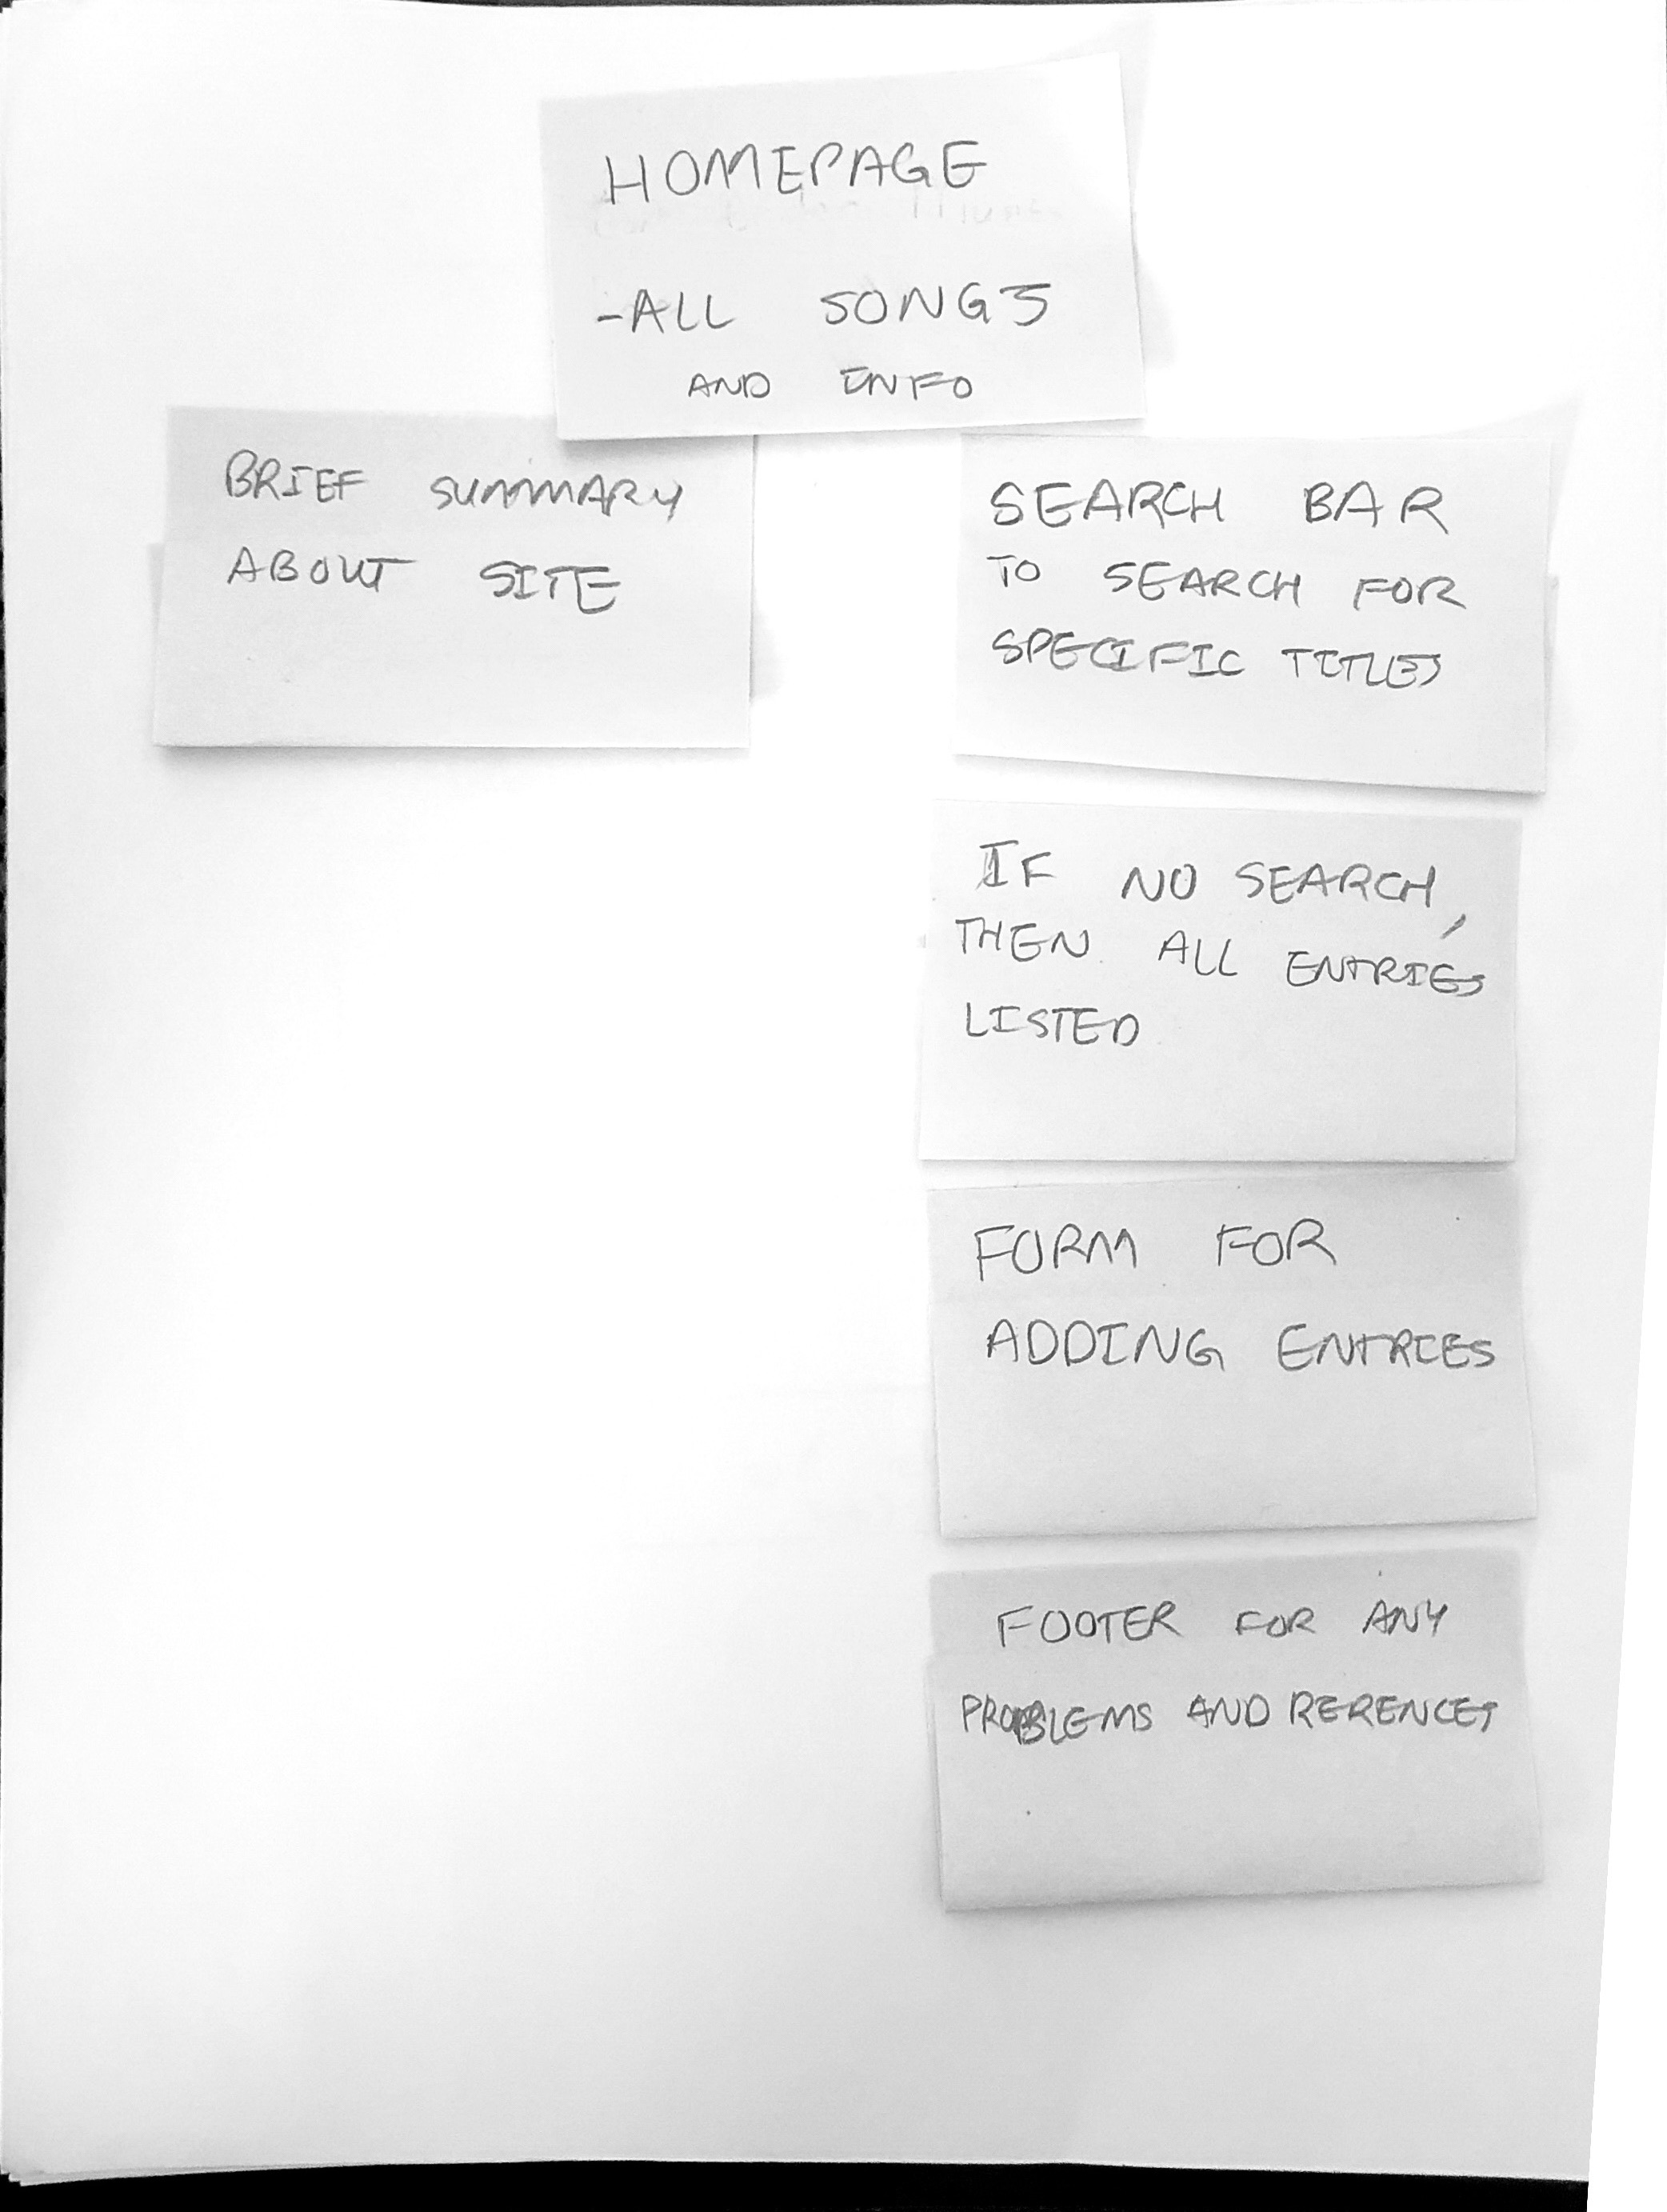 HOMEPAGE
-ALL SONGS
AND INFO
BRIEF SUMMARY
ABOUT SITE
SEARCH BAR
TO SEARCH FOR
SPECIFIC TITLES
IF NO SEARCH,
THEN ALL ENTRIES
LISTED
FORM FOR
ADDING ENTRIES
FOOTER FOR ANY
PROBLEMS AND RERENCES